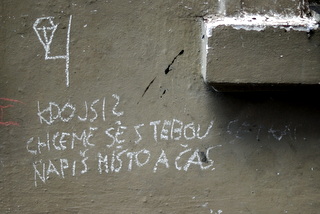 KDO JSI?
CHCEME SE S TEBOU
NAPIŠ MÍSTO A ČAS